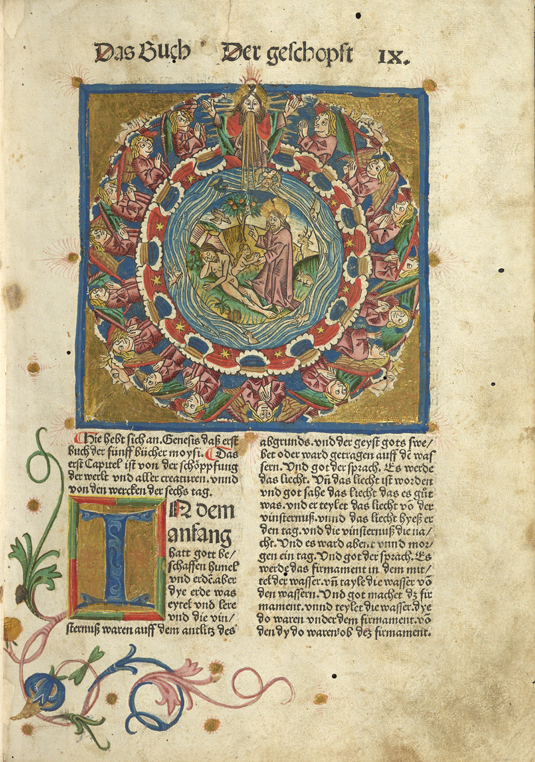 Das Buch Der geschopff IX.
Hie hebt sich an. Genesis daß erst
buch der fünff bücher moysi. Das
erst Capitel ist von der schöppfung
der werlt vnd aller creaturen. vnnd
von den wercken der sechs tag.
IN dem
anfang
hatt gott be/
schaffen hymel
vnd erdē. aber
dye erde was
eytel vnd lere
vnd die vin/
sternuß waren auff dem antlitz des
abgrunds. vnd der geyst gots swe/
bet oder ward getragen auff dē was
sern. Vnd got der sprach. Es werde
das liecht. Vn̄ das liecht ist worden
vnd got sahe das liecht das es gůt
was. vnd er teylet das liecht vō der
vinsternuß. vnnd das liecht hyeß er
den tag. vnd die vinsternuß die na/
cht. Vnd es ward abent vnnd mor/
gen ein tag. Vnd got der sprach. Es
werde das firmament in dem mit/
tel der wasser. vn̄ tayle die wasser vō
den wassern. Vnd got machet dz fir
mament. vnnd teylet die wasser. dye
do waren vnder dem firmament. vō
den dy do waren ob dez firmament.